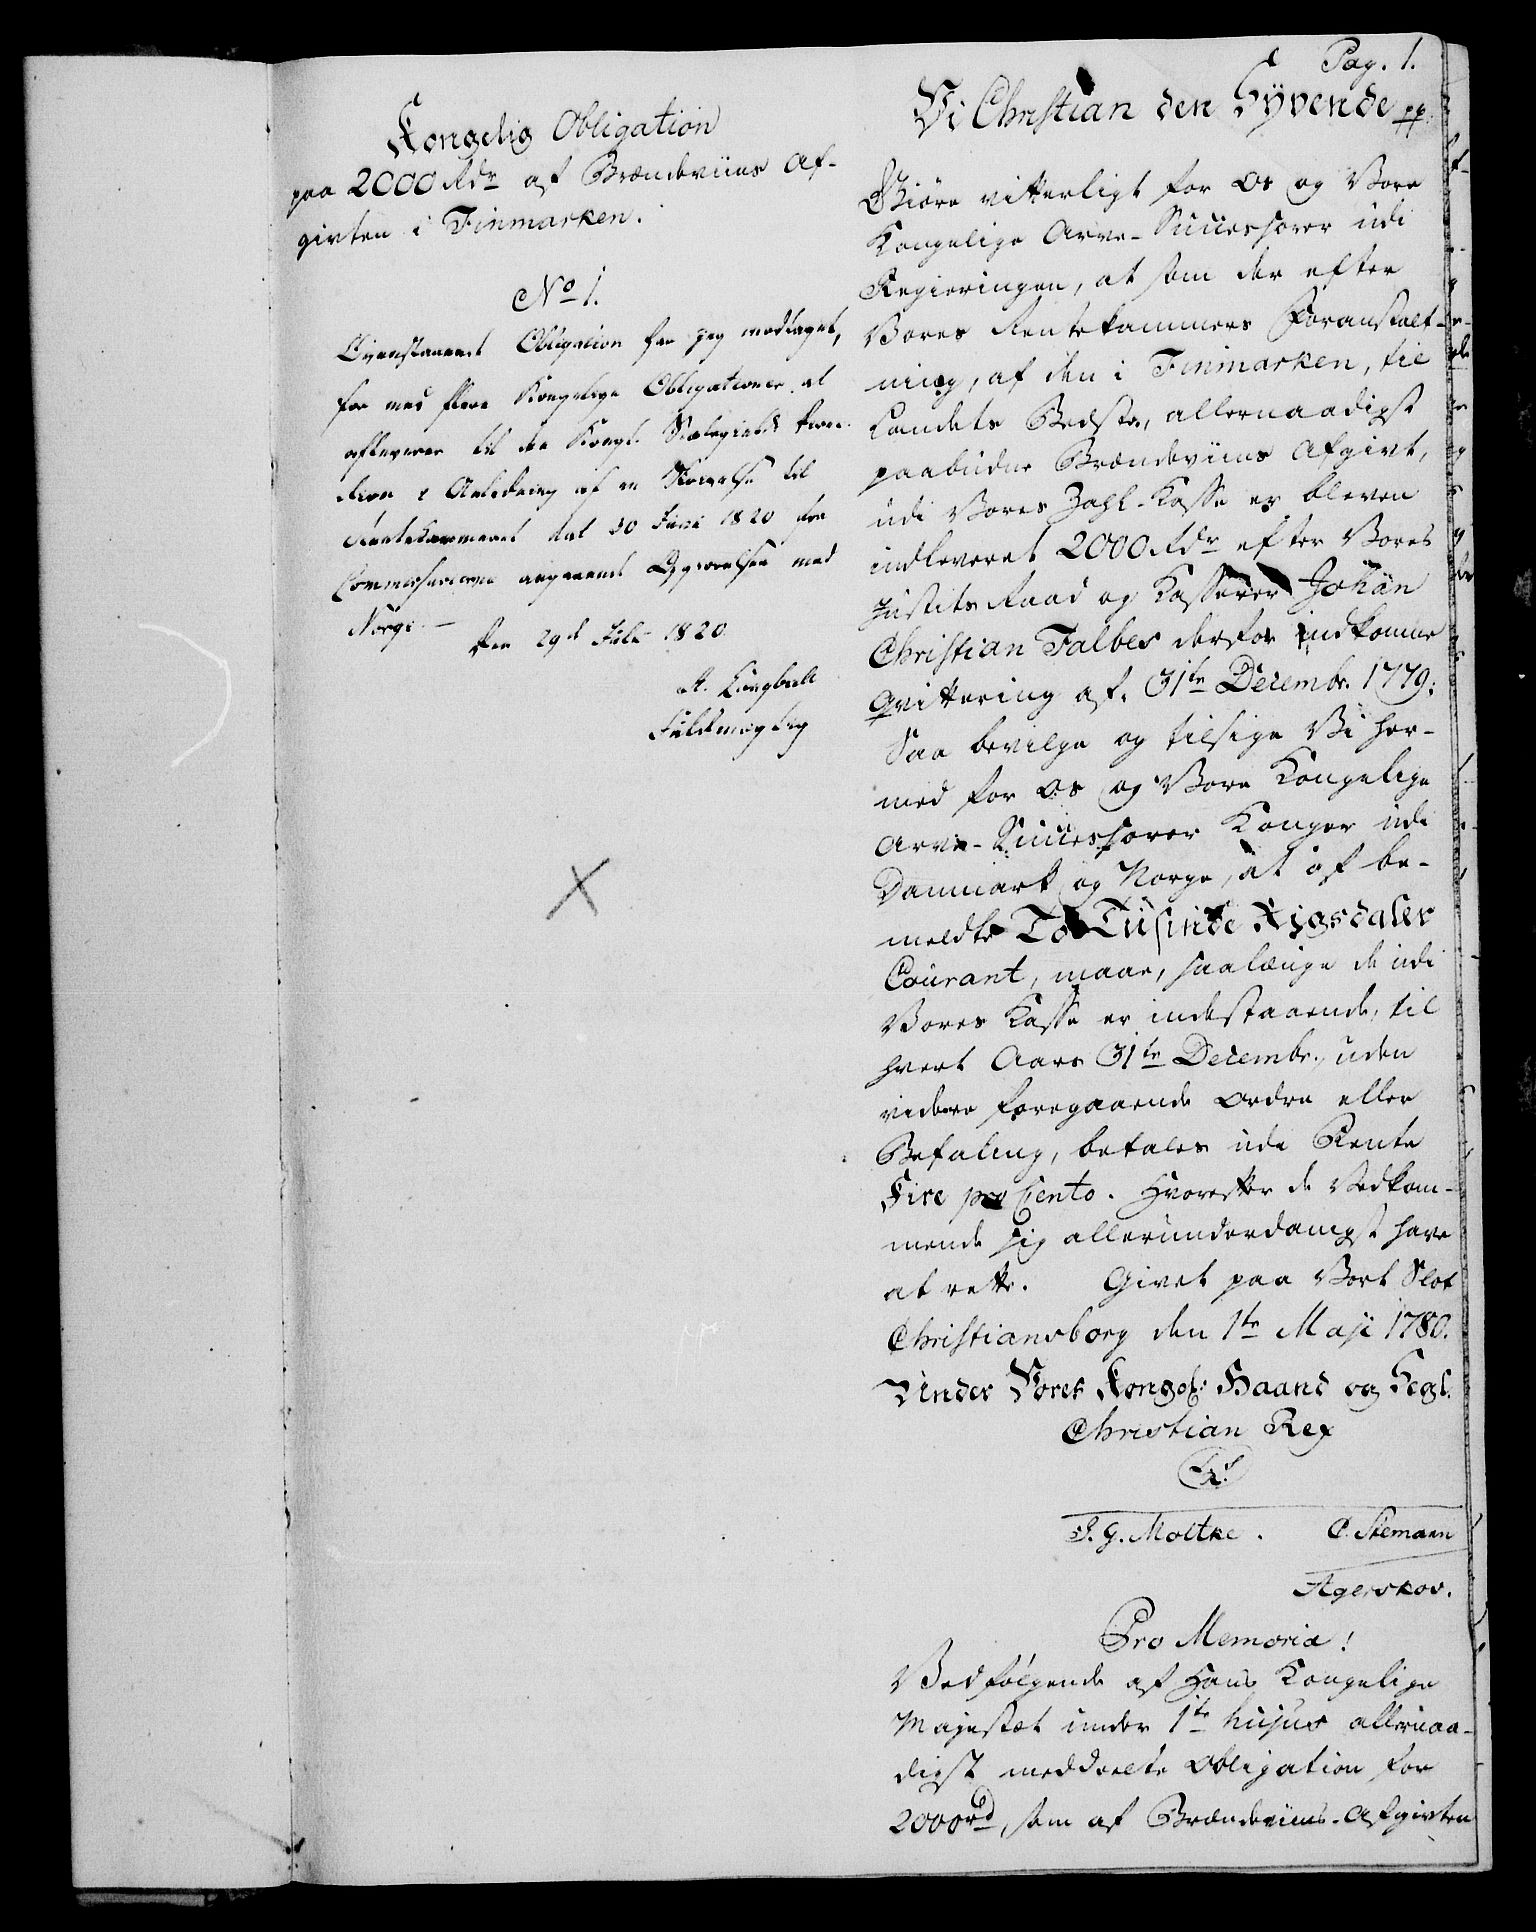 Pag. 1.
Kongelig Obligation
paa 2000 Rdr af Brændeviins Af-
givten i Finmarken.
No 1.
Ovenstaaende Obligation har jeg modtaget,
for med flere Kongelige Obligationer at
afleveres til det Kongl. Direc-
tion i Anledning af en Skrivelse til
Rentekammeret dat 30 Juni 1820 fra
Commissairerne angaaende Opgiørelsen med
Norge. —
den 29d Juli 1820.
A. Lingbell
Fuldmægtig
Vi Christian den Syvende pp.
Giøre vitterligt for os og Vore
Kongelige Arve-Successorer udi
Regieringen, at som der efter
Vores Rentekammers Foranstalt-
ning, af den i Finmarken, til
Landets Bedste, allernaadigst
paabudne Brændeviins Afgivt,
udi Vores Zahl-Kasse er bleven
indleveret 2000 Rdr efter Vores
Justits Raad og Kasserer Johan
Christian Falbes derfor indkomne
Qvittering af 31te Decembr. 1779;
Saa bevilge og tilsige Vi her-
med for os og Vore Kongelige
Arve-Successorer Konger udi
Danmark og Norge, at af be-
meldte To Tusinde Rigsdaler
Courant, maae, saalænge de udi
Vores Kasse er indestaaende, til
hvert Aars 31te Decembr., uden
videre foregaaende Ordre eller
Befaling, betales udi Rente
Fire pro Cento. Hvorefter de Vedkom-
mende sig allerunderdanigst have
at rette. Givet paa Vort Slot
Christiansborg den 1te Maji 1780.
Under Vores Kongel: Haand og Segl.
Christian Rex
J. G. Moltke. C. Stemann
Agerskov.
Pro Memoria!
Vedfølgende af Hans Kongelige
Majestæt under 1te hujus allernaa-
digst meddeelte Obligation for
2000rd, som af Brændeviins-Afgivten